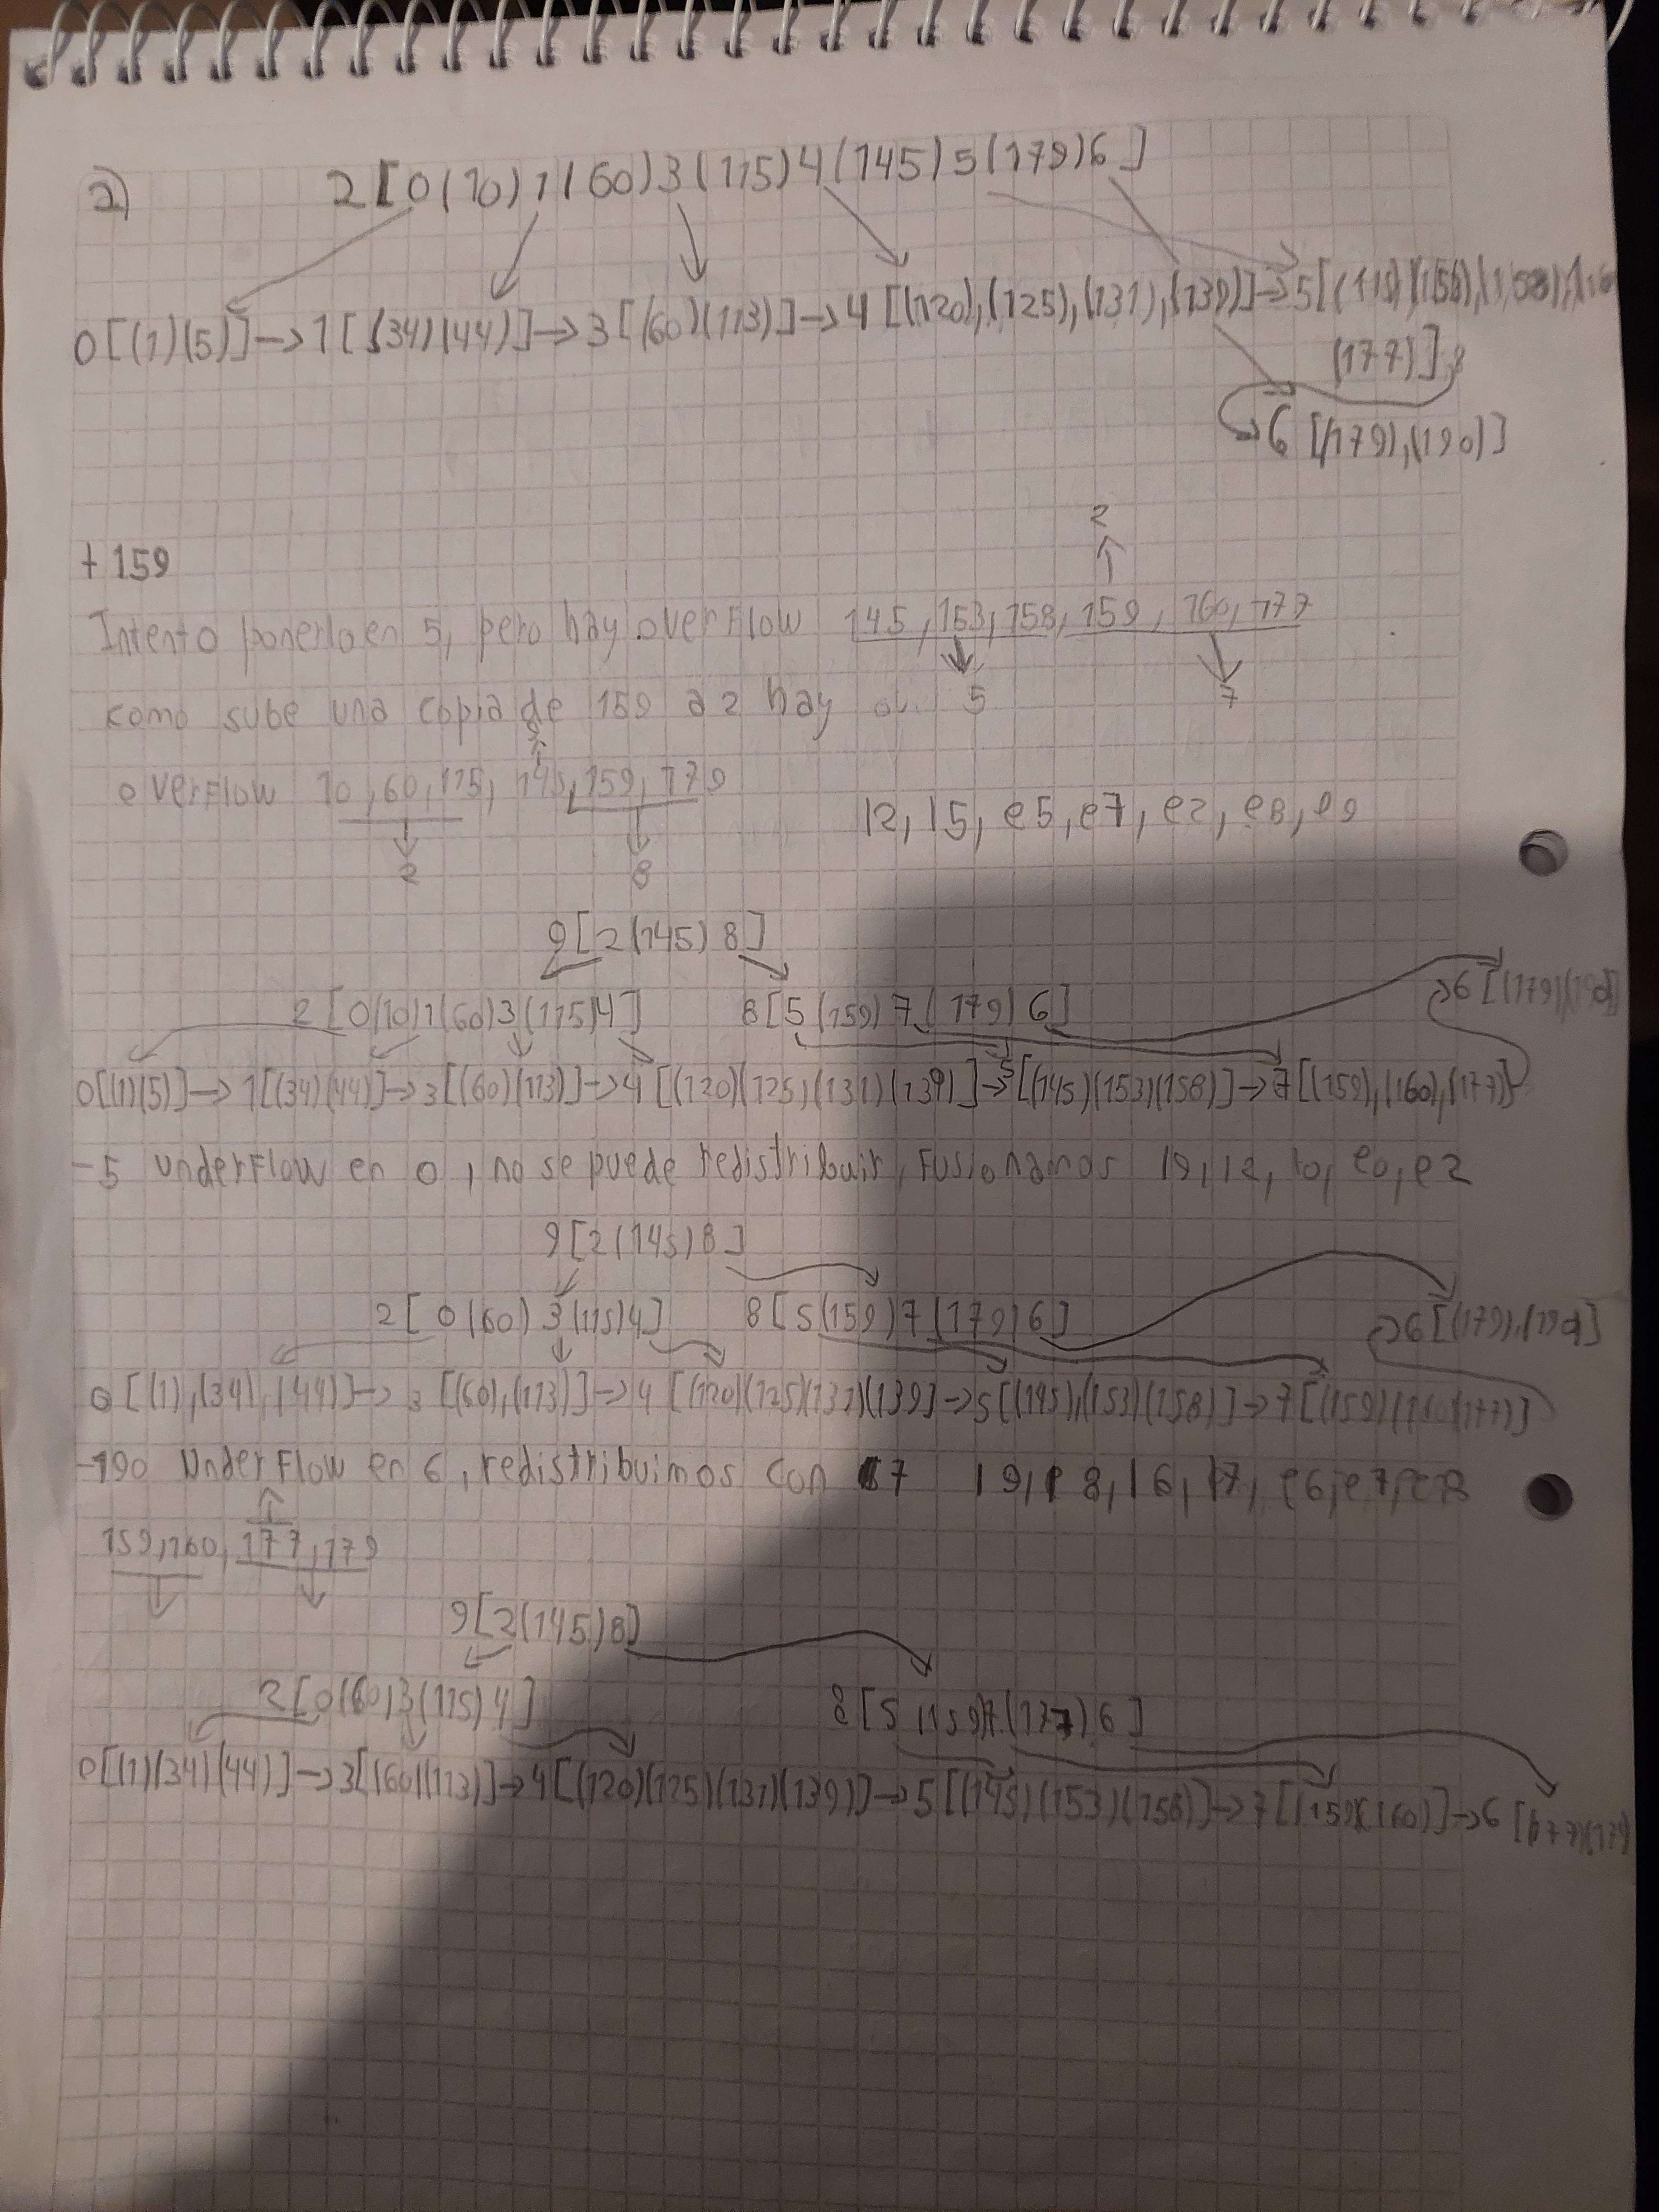 2) 2[0(10)1(60)3(115)4(145)5(179)6]
0[(1)(5)]→1[(34)(44)]→3[(60)(113)]→4[(120),(125),(131),(139)]→5[
(177)]
6[(179),(190)]
+159
2
Intento ponerlo en 5, pero hay overflow 145,153,158,159,160,177
como sube una copia de 159 a 2 hay 5 7
overflow 10,60,115,145,159,179
l2, l5, e5, e7, e2, e8, e9
2 8
9[2(145)8]
2[0(10)1(60)3(115)4] 8[5(159)7(179)6] →6[(179)(190)]
0[(1)(5)]→1[(34)(44)]→3[(60)(113)]→4[(120)(125)(131)(139)]→5[(145)(153)(158)]→7[(159),(160),(177)]
-5 underflow en 0, no se puede redistribuir, Fusionamos l9,l2,l0,e0,e2
9[2(145)8]
2[0(60)3(115)4] 8[5(159)7(179)6] →6[(179),(190)]
0[(1),(34),(44)]→3[(60),(113)]→4[(120)(125)(131)(139]→5[(145),(153)(158)]→7[(159)(160)(177)]
-190 Underflow en 6, redistribuimos con 7 l9,l8,l6,l7,e6,e7,e8
159,160,177,179
9[2(145)8]
2[0(60)3(115)4] 8[5(159)7(177)6]
0[(1)(34)(44)]→3[(60)(113)]→4[(120)(125)(131)(139)]→5[(145)(153)(158)]→7[(159)(160)]→6[(177)(179)